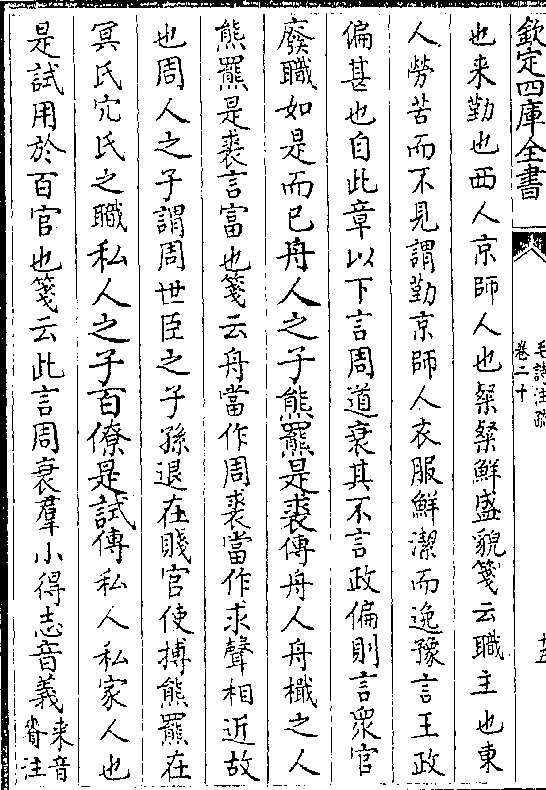 欽定四庫全書
毛詩注疏
卷二十
十五
也来勤也西人京師人也粲粲鮮盛貌箋云職主也東
人勞苦而不見謂勤京師人衣服鮮潔而逸豫言王政
偏甚也自此章以下言周道衰其不言政偏則言衆官
廢職如是而已舟人之子熊羆是裘傳舟人舟檝之人
熊羆是裘言富也箋云舟當作周裘當作求聲相近故
也周人之子謂周世臣之子孫退在賤官使搏熊羆在
冥氏穴氏之職私人之子百僚是試傳私人私家人也
是試用於百官也箋云此言周衰羣小得志音義来音
注